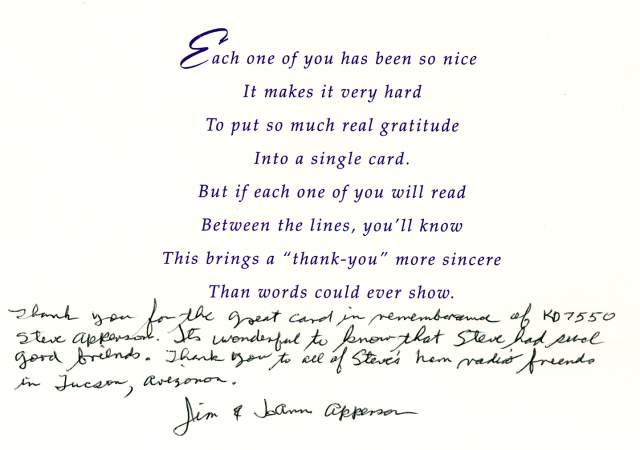 Each one of you has been so nice
It makes it very hard
To put so much real gratitude
Into a single card.
But if each one of you will read
Between the lines, you'll know
This brings a “thank-you” more sincere
Than words could ever show.
Thank you for the great card in rememberance of KD7550
Steve Apperson. Its wonderful to know that Steve had such
good friends. Thank you to all of Steve's ham radio friends
in Tucson, Arizona.
Jim & JoAnn Apperson